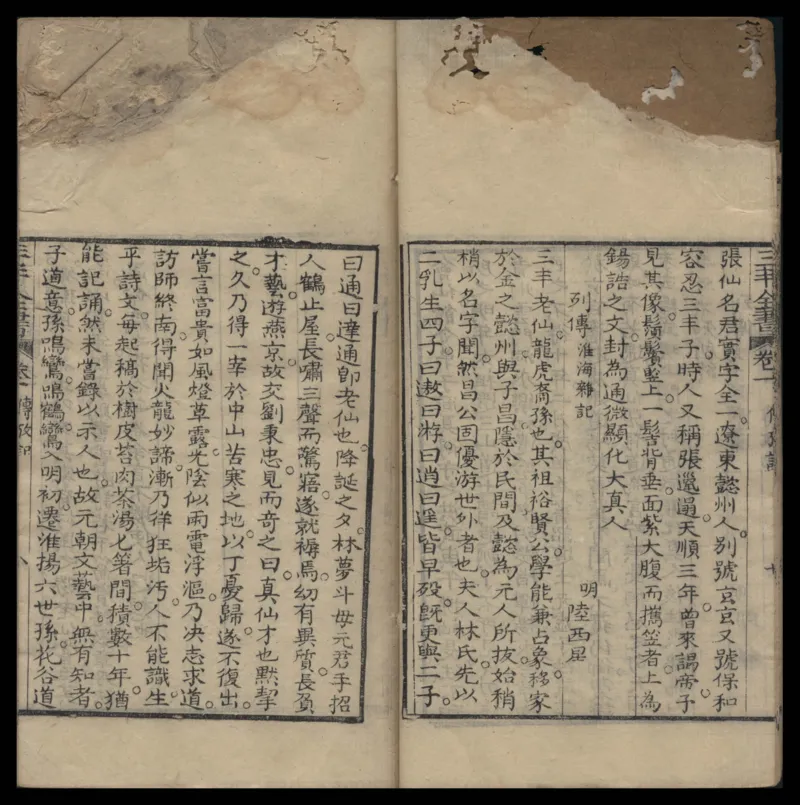 三丰全書 卷一
張仙名君實字全一遼東懿州人別號玄玄又號保和
容忍三丰子時人又稱張邋遢天順三年曾來謁帝予
見其像鬚鬢竪上一髻背垂面紫大腹而攜笠者上為
錫誥之文封為通微顯化大真人
列傳 淮海雜記
明 陸西星
三丰老仙龍虎裔孫也其祖裕賢公學能兼占象移家
於金之懿州與子昌隱於民間及懿為元人所拔始稍
稍以名字聞然昌公固優游世外者也夫人林氏先以
二乳生四子曰遨曰游曰逍曰遥皆早殁旣更與二子
曰通曰達通即老仙也降誕之夕林夢斗母元君手招
人鶴止屋長嘯三聲而驚寤遂就褥焉幼有異質長負
才藝遊燕京故交劉秉忠見而奇之曰真仙才也黙挈
之久乃得一宰於中山苦寒之地以丁憂歸遂不復出
嘗言富貴如風燈草露光陰似雨電浮漚乃決志求道
訪師終南得聞火龍妙諦漸乃佯狂垢汚人不能識生
平詩文每起稿於樹皮苔肉茶湯匕箸間積數十年猶
能記誦然未嘗錄以示人也故元朝文藝中無有知者
子道意孫鳴鸞鳴鶴鸞入明初遷淮揚六世孫花谷道
三丰全書 卷一 傳 八